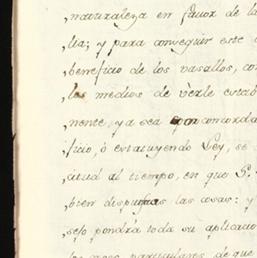 ,naturaleza en favor de la
lia; y para conseguir este
,beneficio de los vasallos, con
,los medios de vèrle
,nente, ya sea con concorda
ficio, ò estatuyendo Ley, se
citud al tiempo, en que S.
bien dispuestas las cosas: y
seso pondrá toda su aplicacio
particulares de que